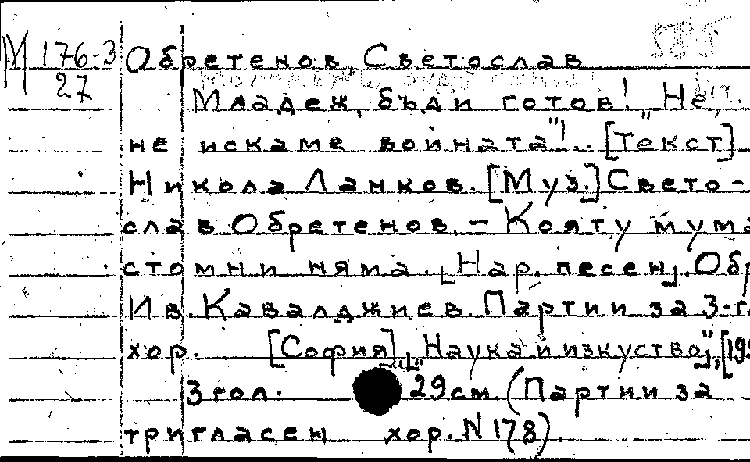 М 176-3 Обретенов, Светослав
27
Младеж, бъди готов! „Не,
не искаме войната"! [Текст]
Никола Ланков. [Муз.] Свето-
слав Обретенов. – Кояту мума
стомни няма. [Нар. песен]. Обр
Ив. Кавалджиев. Партии за 3-г.
хор. [София], „Наука и изкуство",
3 гол. 29 см. (Партии за
тригласен хор. N 178).